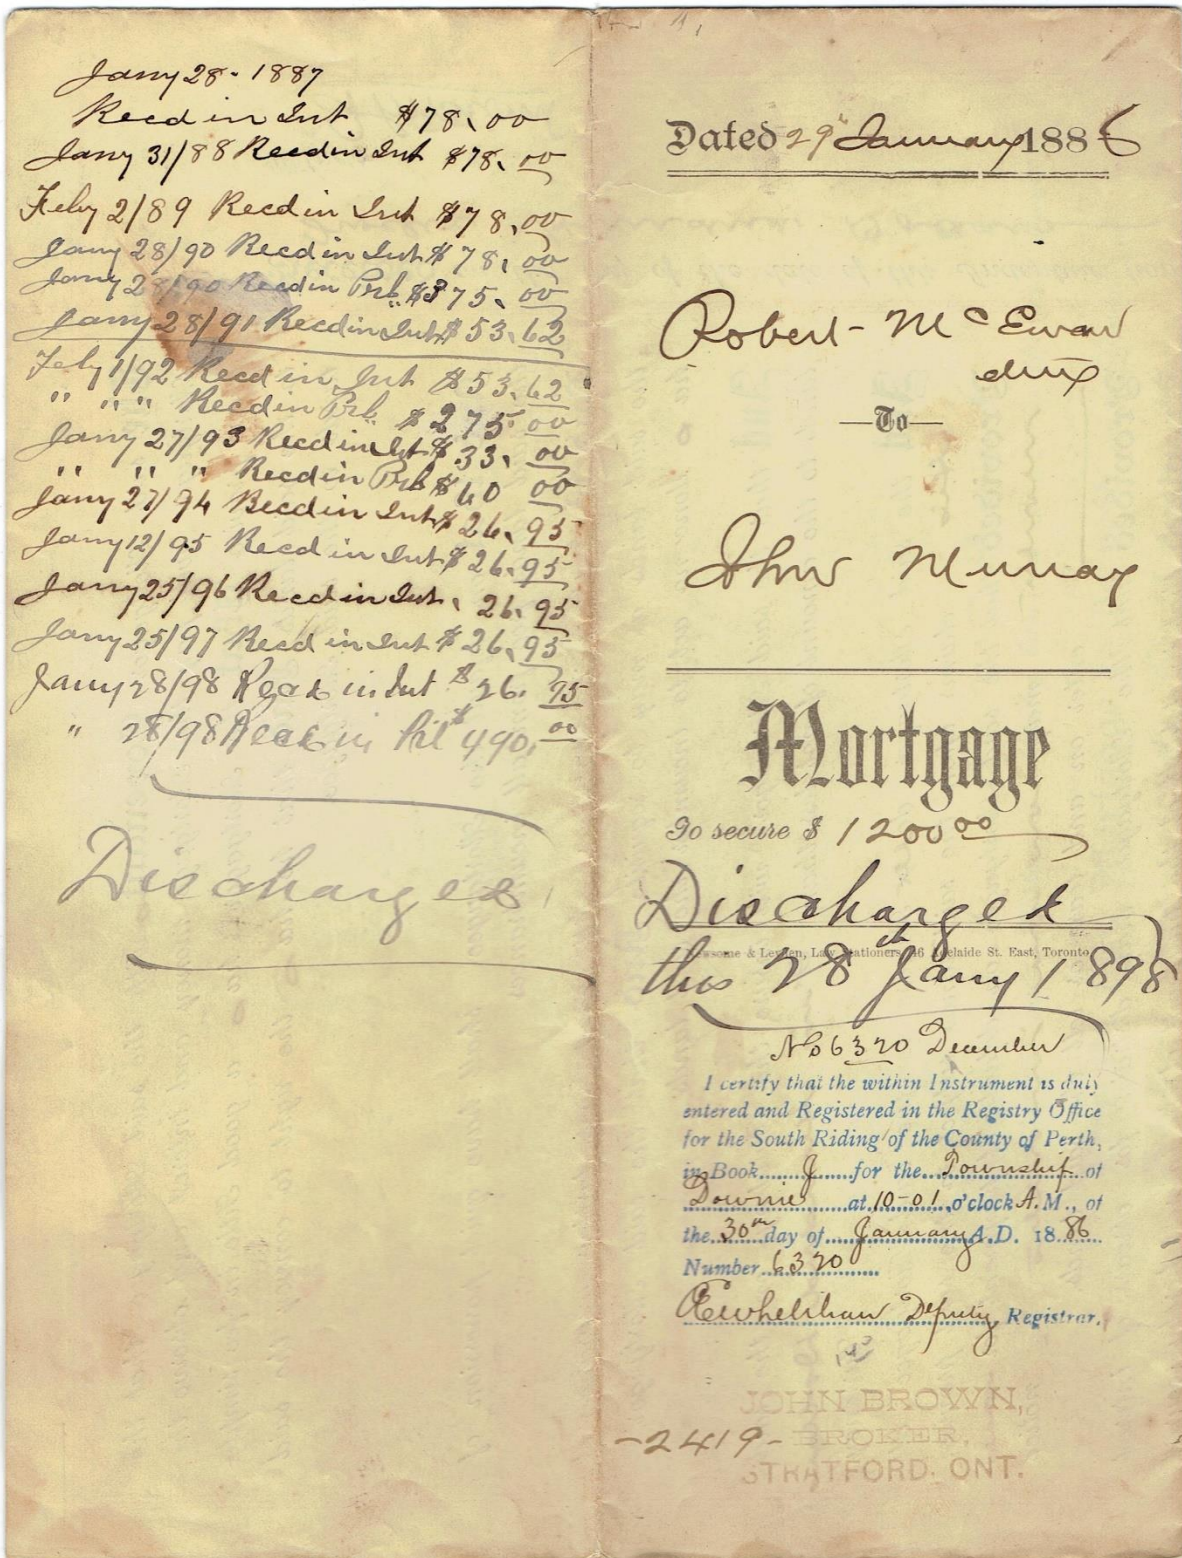 Jany 28 - 1887
Recd in Int $78.00
Jany 31/88 Recd in Int $78.00
Feby 2/89 Recd in Int $78.00
Jany 28/90 Recd in Int $78.00
Jany 28/90 Recd in Prl. $375.00
Jany 28/91 Recd in Int $53.62
Feby 1/92 Recd in Int $53.62
" " " Recd in Prl. $275.00
Jany 27/93 Recd in Int $33.00
" " " Recd in Prl $60 00
Jany 27/94 Recd in Int $26.95
Jany 12/95 Recd in Int $26.95
Jany 25/96 Recd in Int. 26.95
Jany 25/97 Recd in Int $26.95
Jany 28/98 Recd in Int $26.95
" 28/98 Recd in Prl $490.00
Discharged
Dated 29th January 1886
Robert McEwan
etux
To
John Murray
Mortgage
To secure $1200.00
Discharged
Newsome & Co., Law Stationers, 46 Adelaide St. East, Toronto
this 28th Jany 1898
No 6320 December
I certify that the within Instrument is duly
entered and Registered in the Registry Office
for the South Riding of the County of Perth,
in Book J for the Township of
Downie at 10-01 o'clock A.M., of
the 30th day of January A.D. 1886
Number 6320
Deputy Registrar.
JOHN BROWN,
-2419- BROKER,
STRATFORD. ONT.